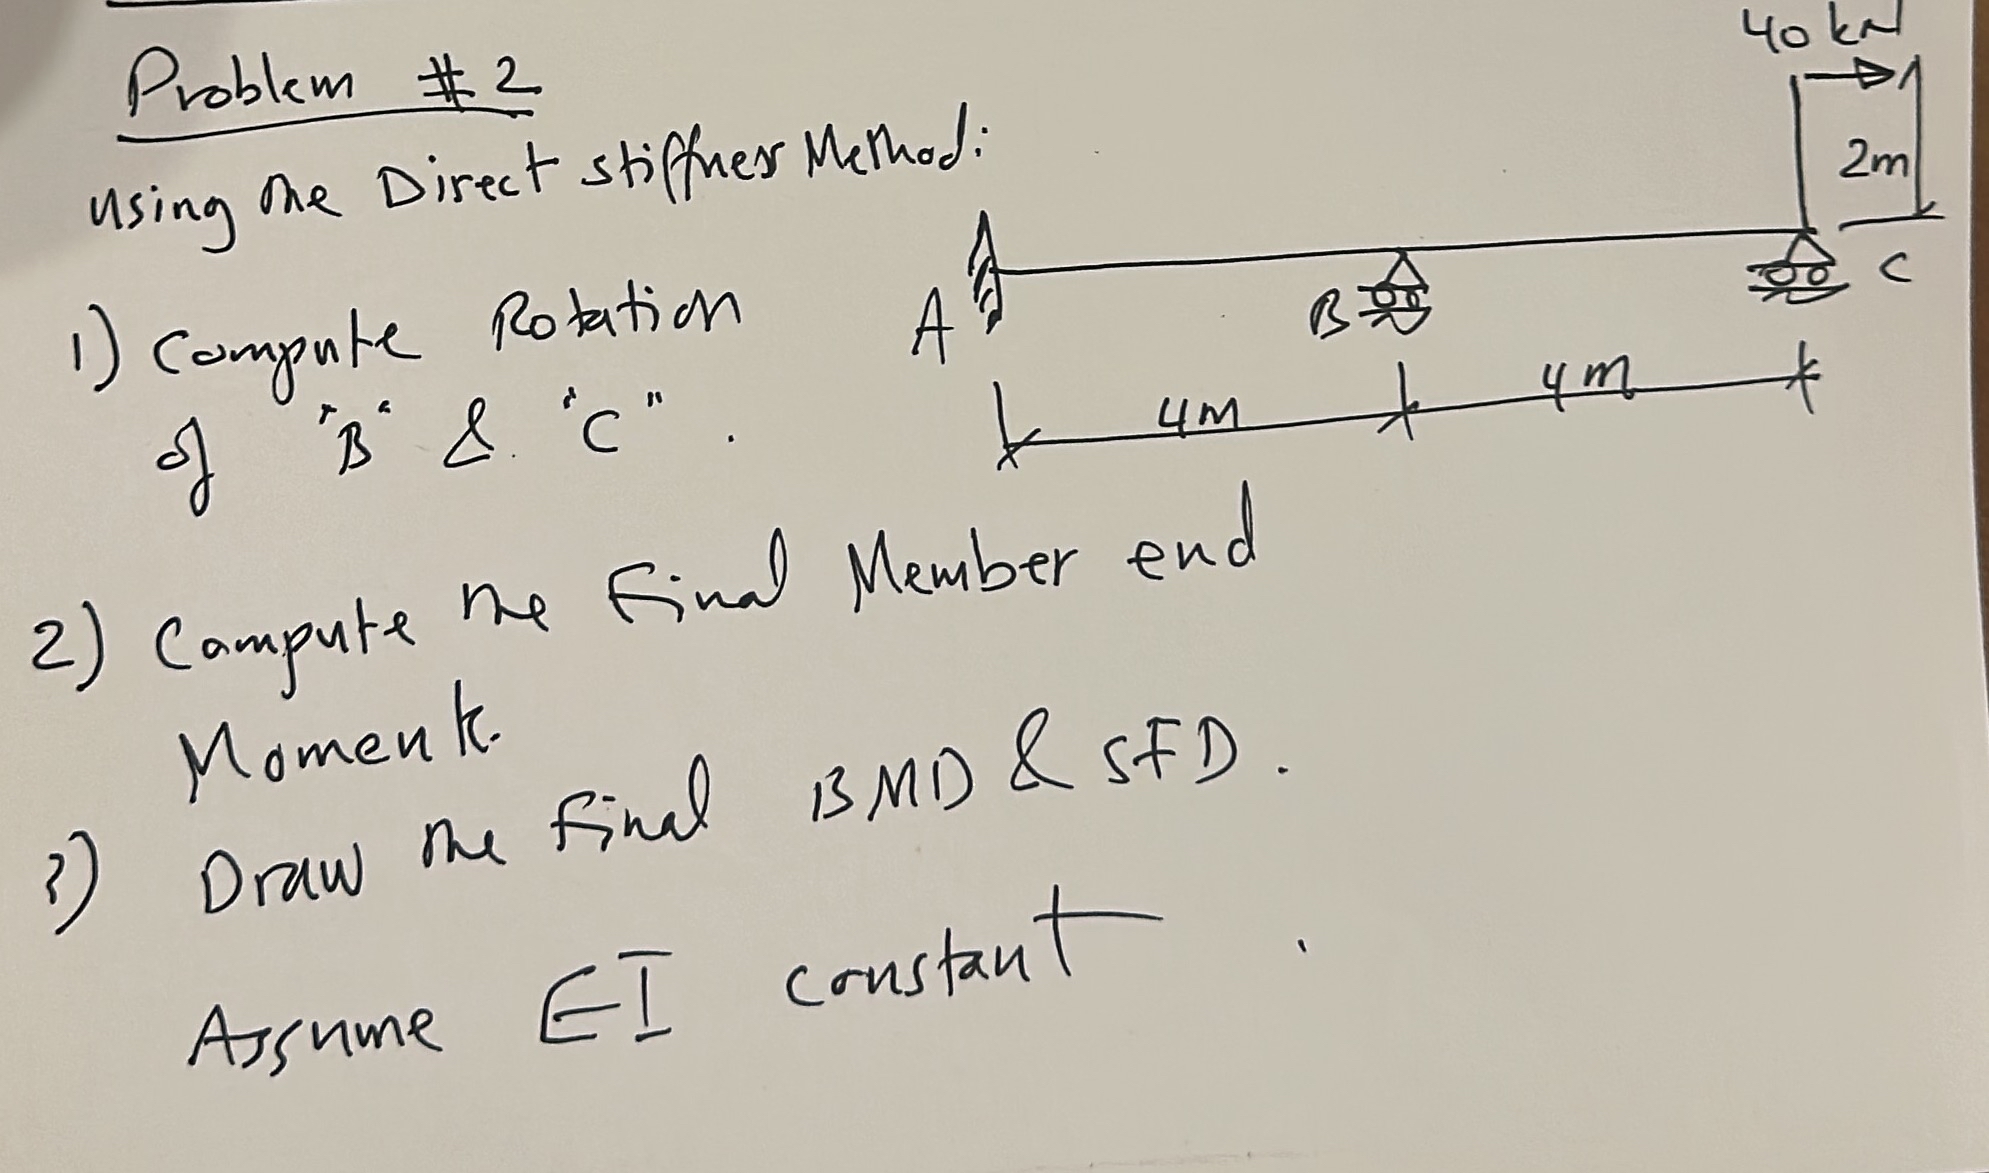 Problem #2
using the Direct stiffness Method:
1) Compute Rotation
of "B" & "C".
2) Compute the Final Member end
Moments.
3) Draw the final BMD & SFD.
Assume EI constant
40 kN
2m
A
B
C
4m
4m